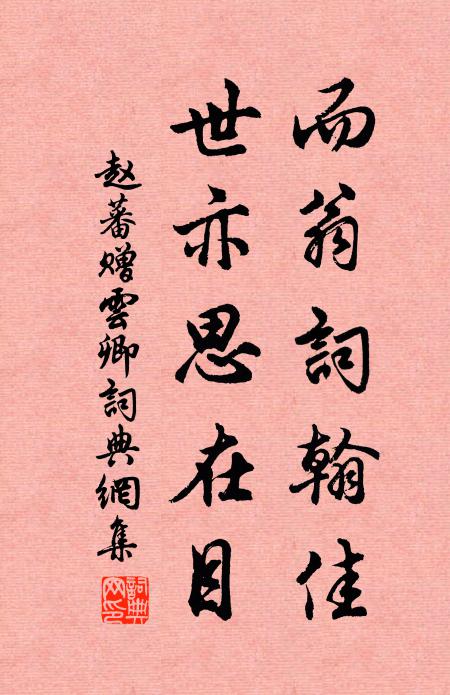 而翁詞翰佳
世亦思在目
赵蕃赠雲卿詞典網集
詞典网印